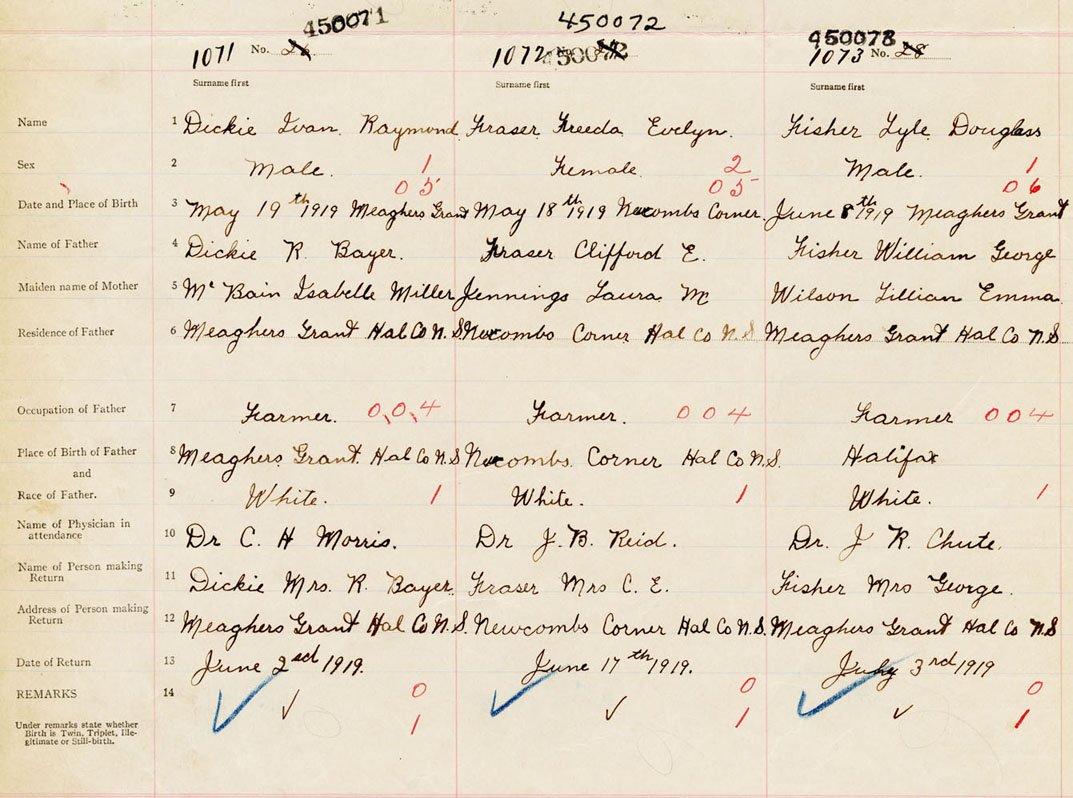 450071 450072 450073
1071 No. 26 1072 No. 27 450072 1073 No. 28
Surname first Surname first Surname first
Name 1 Dickie Ivan Raymond Fraser Freeda Evelyn. Fisher Lyle Douglass
Sex 2 Male. 1 Female. 2 Male. 1
05 05 06
Date and Place of Birth 3 May 19th 1919 Meaghers Grant May 18th 1919 Newcombs Corner. June 8th 1919 Meaghers Grant
Name of Father 4 Dickie R. Bayer. Fraser Clifford E. Fisher William George
Maiden name of Mother 5 Mc Bain Isabelle Miller Jennings Laura Mc Wilson Lillian Emma.
Residence of Father 6 Meaghers Grant Hal Co N.S. Newcombs Corner Hal Co N.S. Meaghers Grant Hal Co N.S.
Occupation of Father 7 Farmer. 0,0,4 Farmer. 004 Farmer 004
Place of Birth of Father 8 Meaghers Grant. Hal Co N.S. Newcombs. Corner Hal Co N.S. Halifax
and
Race of Father. 9 White. 1 White. 1 White. 1
Name of Physician in
attendance 10 Dr C. H Morris. Dr J. B. Reid. Dr. J R. Chute.
Name of Person making
Return 11 Dickie Mrs. R. Bayer. Fraser Mrs C. E. Fisher Mrs George.
Address of Person making
Return 12 Meaghers Grant Hal Co N.S. Newcombs Corner Hal Co N.S. Meaghers Grant Hal Co N.S
Date of Return 13 June 2nd 1919. June 17th 1919. July 3rd 1919
REMARKS 14 0 0 0
1 1 1
Under remarks state whether
Birth is Twin, Triplet, Ille-
gitimate or Still-birth.